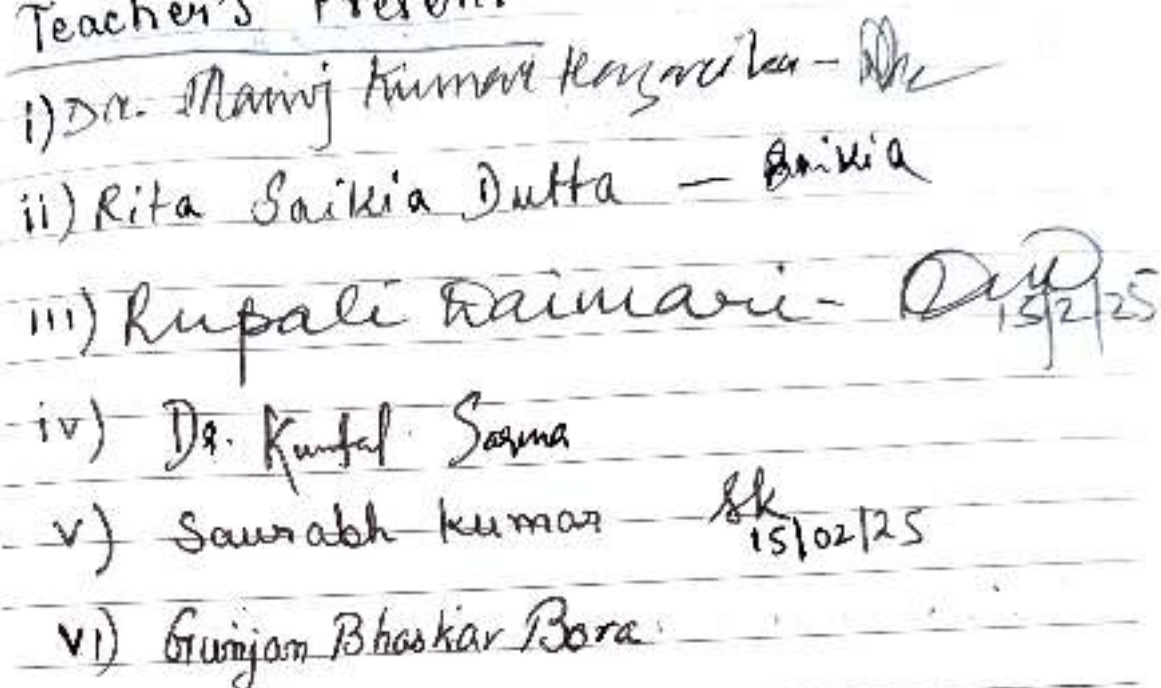 Teacher's Present
i) Dr. Manoj Kumar Hazarika -
ii) Rita Saikia Dutta - Saikia
iii) Rupali Daimari - 15/2/25
iv) Dr. Kuntal Sarma
v) Saurabh Kumar SK 15/02/25
vi) Gunjan Bhaskar Bora